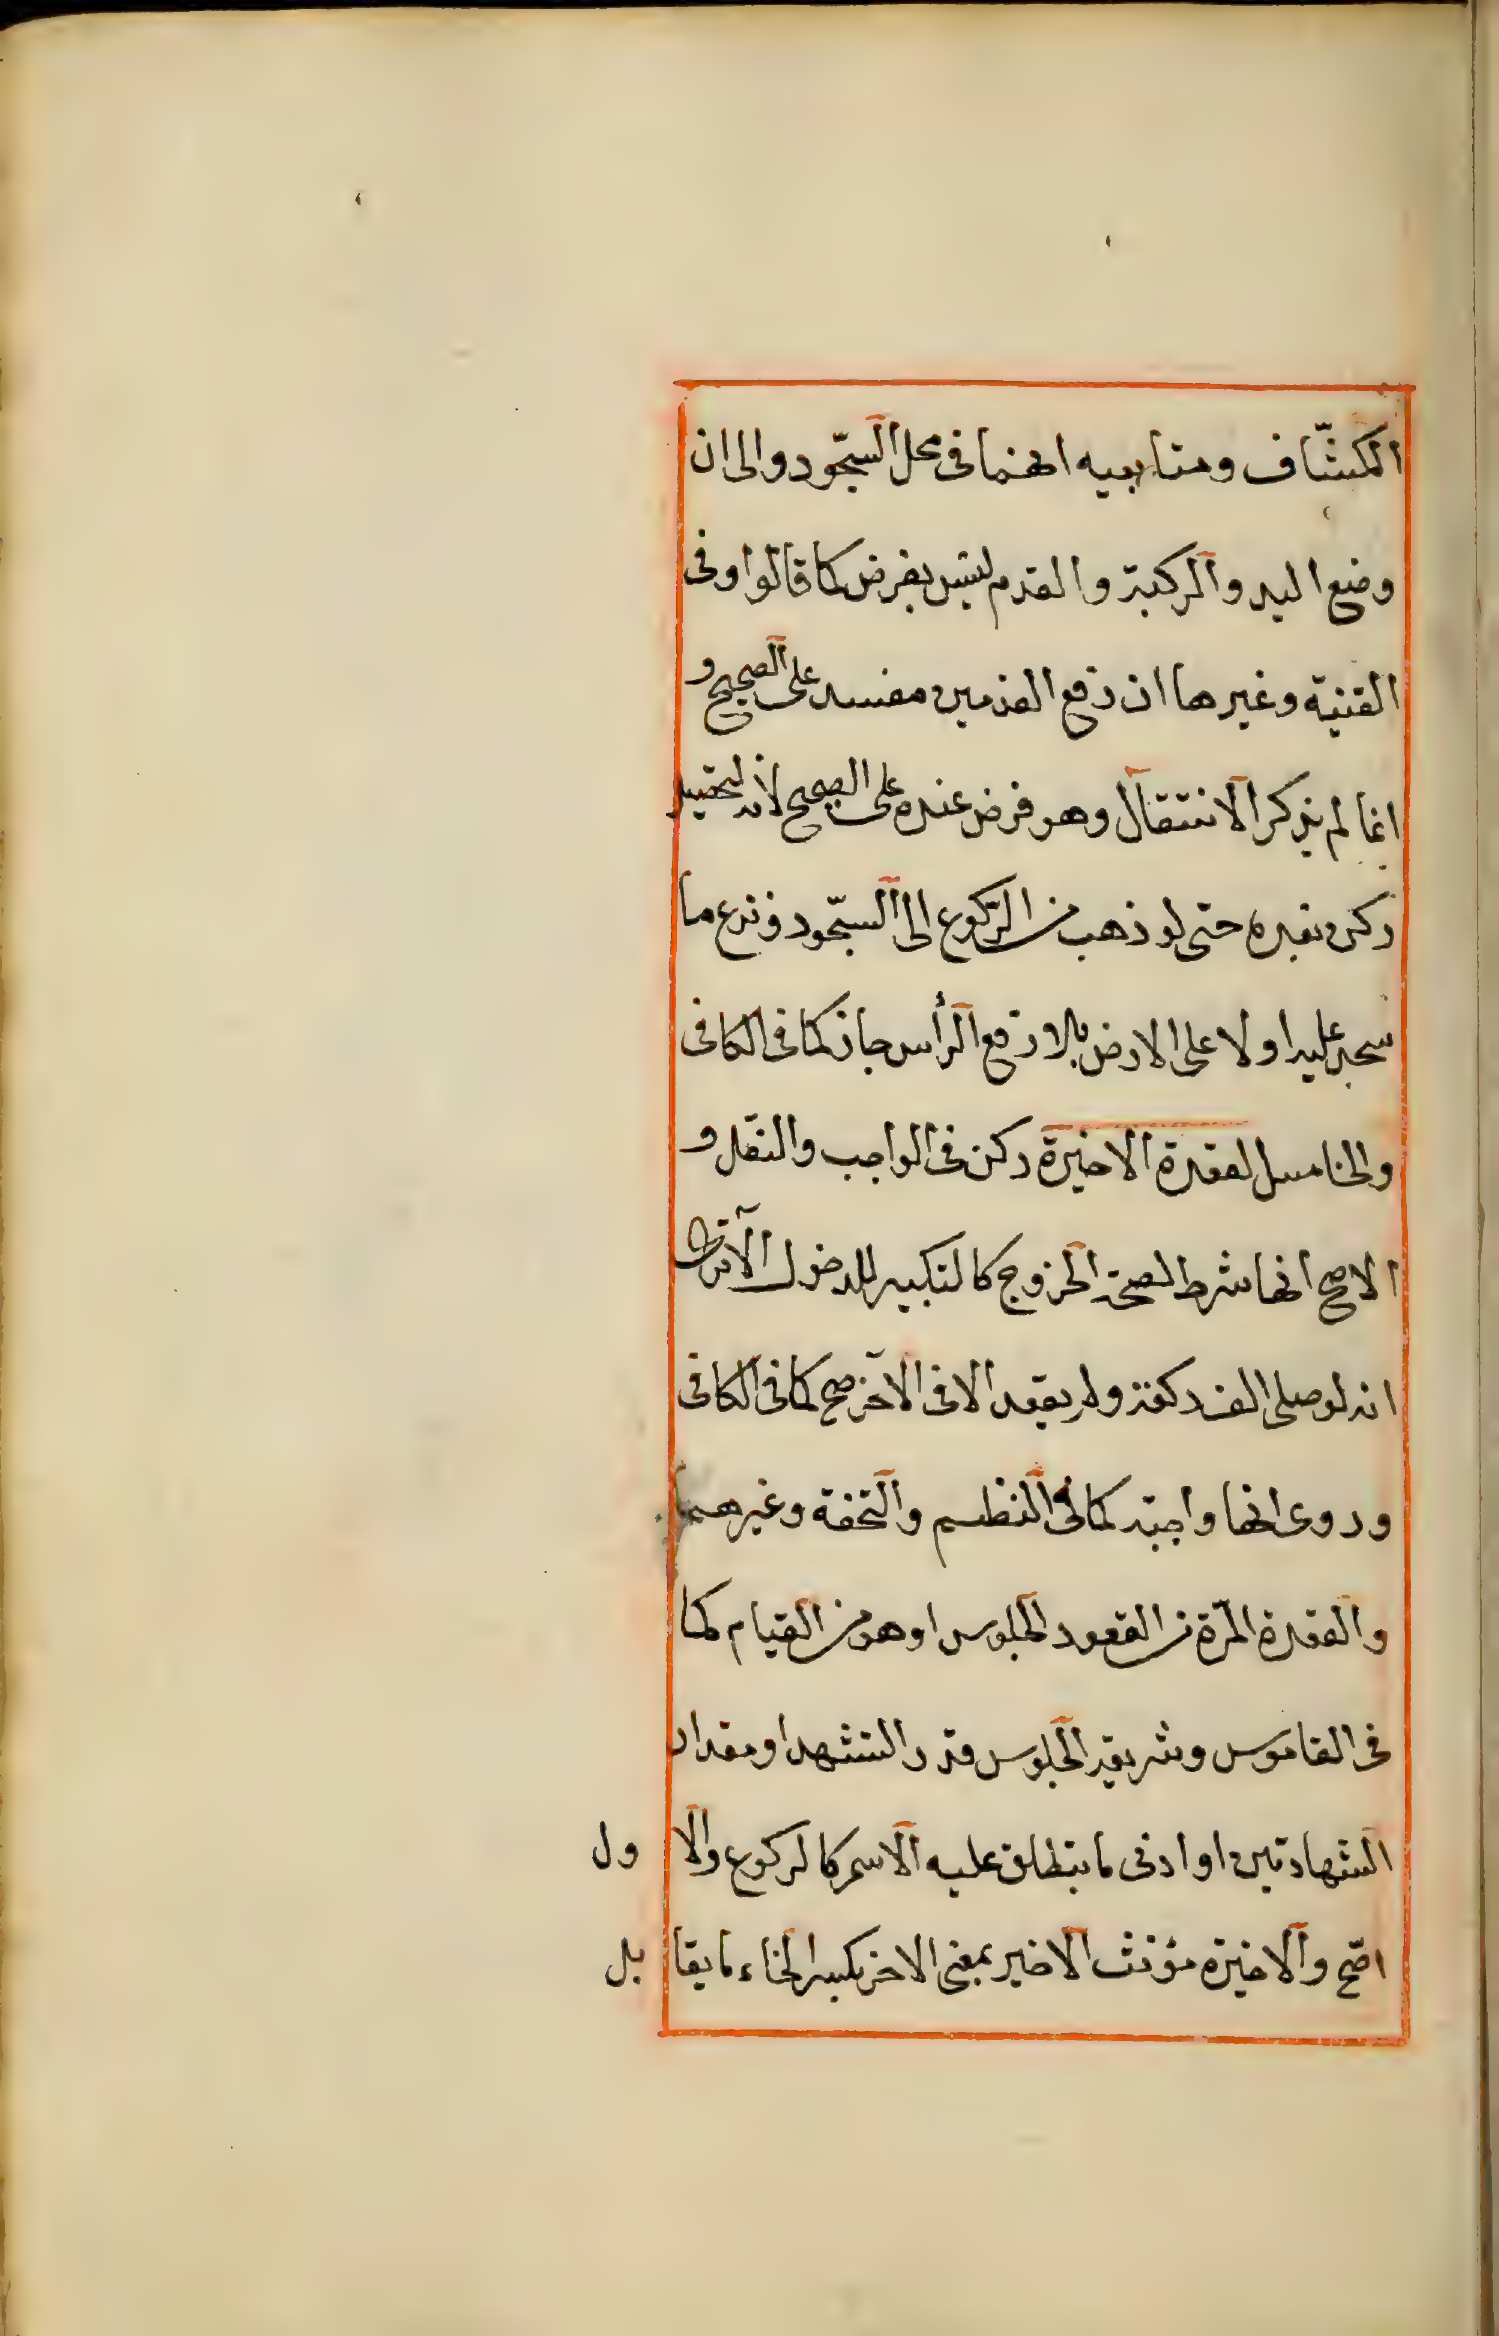 الكشّاف ومتابيه انهما فى محل السّجود والى ان
وضع اليد والركبة والقدم ليس بفرض كما قالوا وفى
القنية وغيرها ان رفع القدمين مفسد على الصحيح و
انما لم يذكر الانتقال وهو فرض عنده على الصحيح لانه لتحقيق
ركن بغيره حتى لو ذهب من الركوع الى السّجود ونزع ما
سجد عليه اولا على الارض بلا رفع الرأس جاز كما فى الكافى
والخامس القعدة الاخيرة ركن فى الواجب والنفل و
الاصح انها شرط لصحة الخروج كالتكبير للدخول الا ترى
انه لو صلى الف ركعة ولم يقعد الا فى الاخر صح كما فى الكافى
وروى انها واجبة كما فى النظم والتحفة وغيرهما
والقعدة المرّة من القعود الجلوس او هو من القيام كما
فى القاموس وشريعة الجلوس قدر التشهد او مقدار
الشهادتين او ادنى ما ينطلق عليه الاسم كالركوع والاول
اصح والاخيرة مؤنث الاخير بمعنى الاخر بكسر الخاء ما يقابل